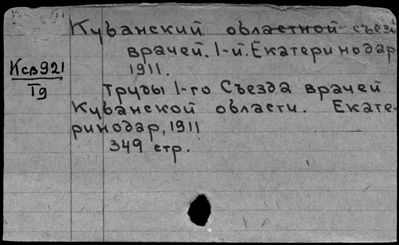 Кубанский областной съезд
врачей. 1-й. Екатеринодар
1911.
Ксв921
Тд
Труды 1-го Съезда врачей
Кубанской области. Екате-
ринодар, 1911
349 стр.